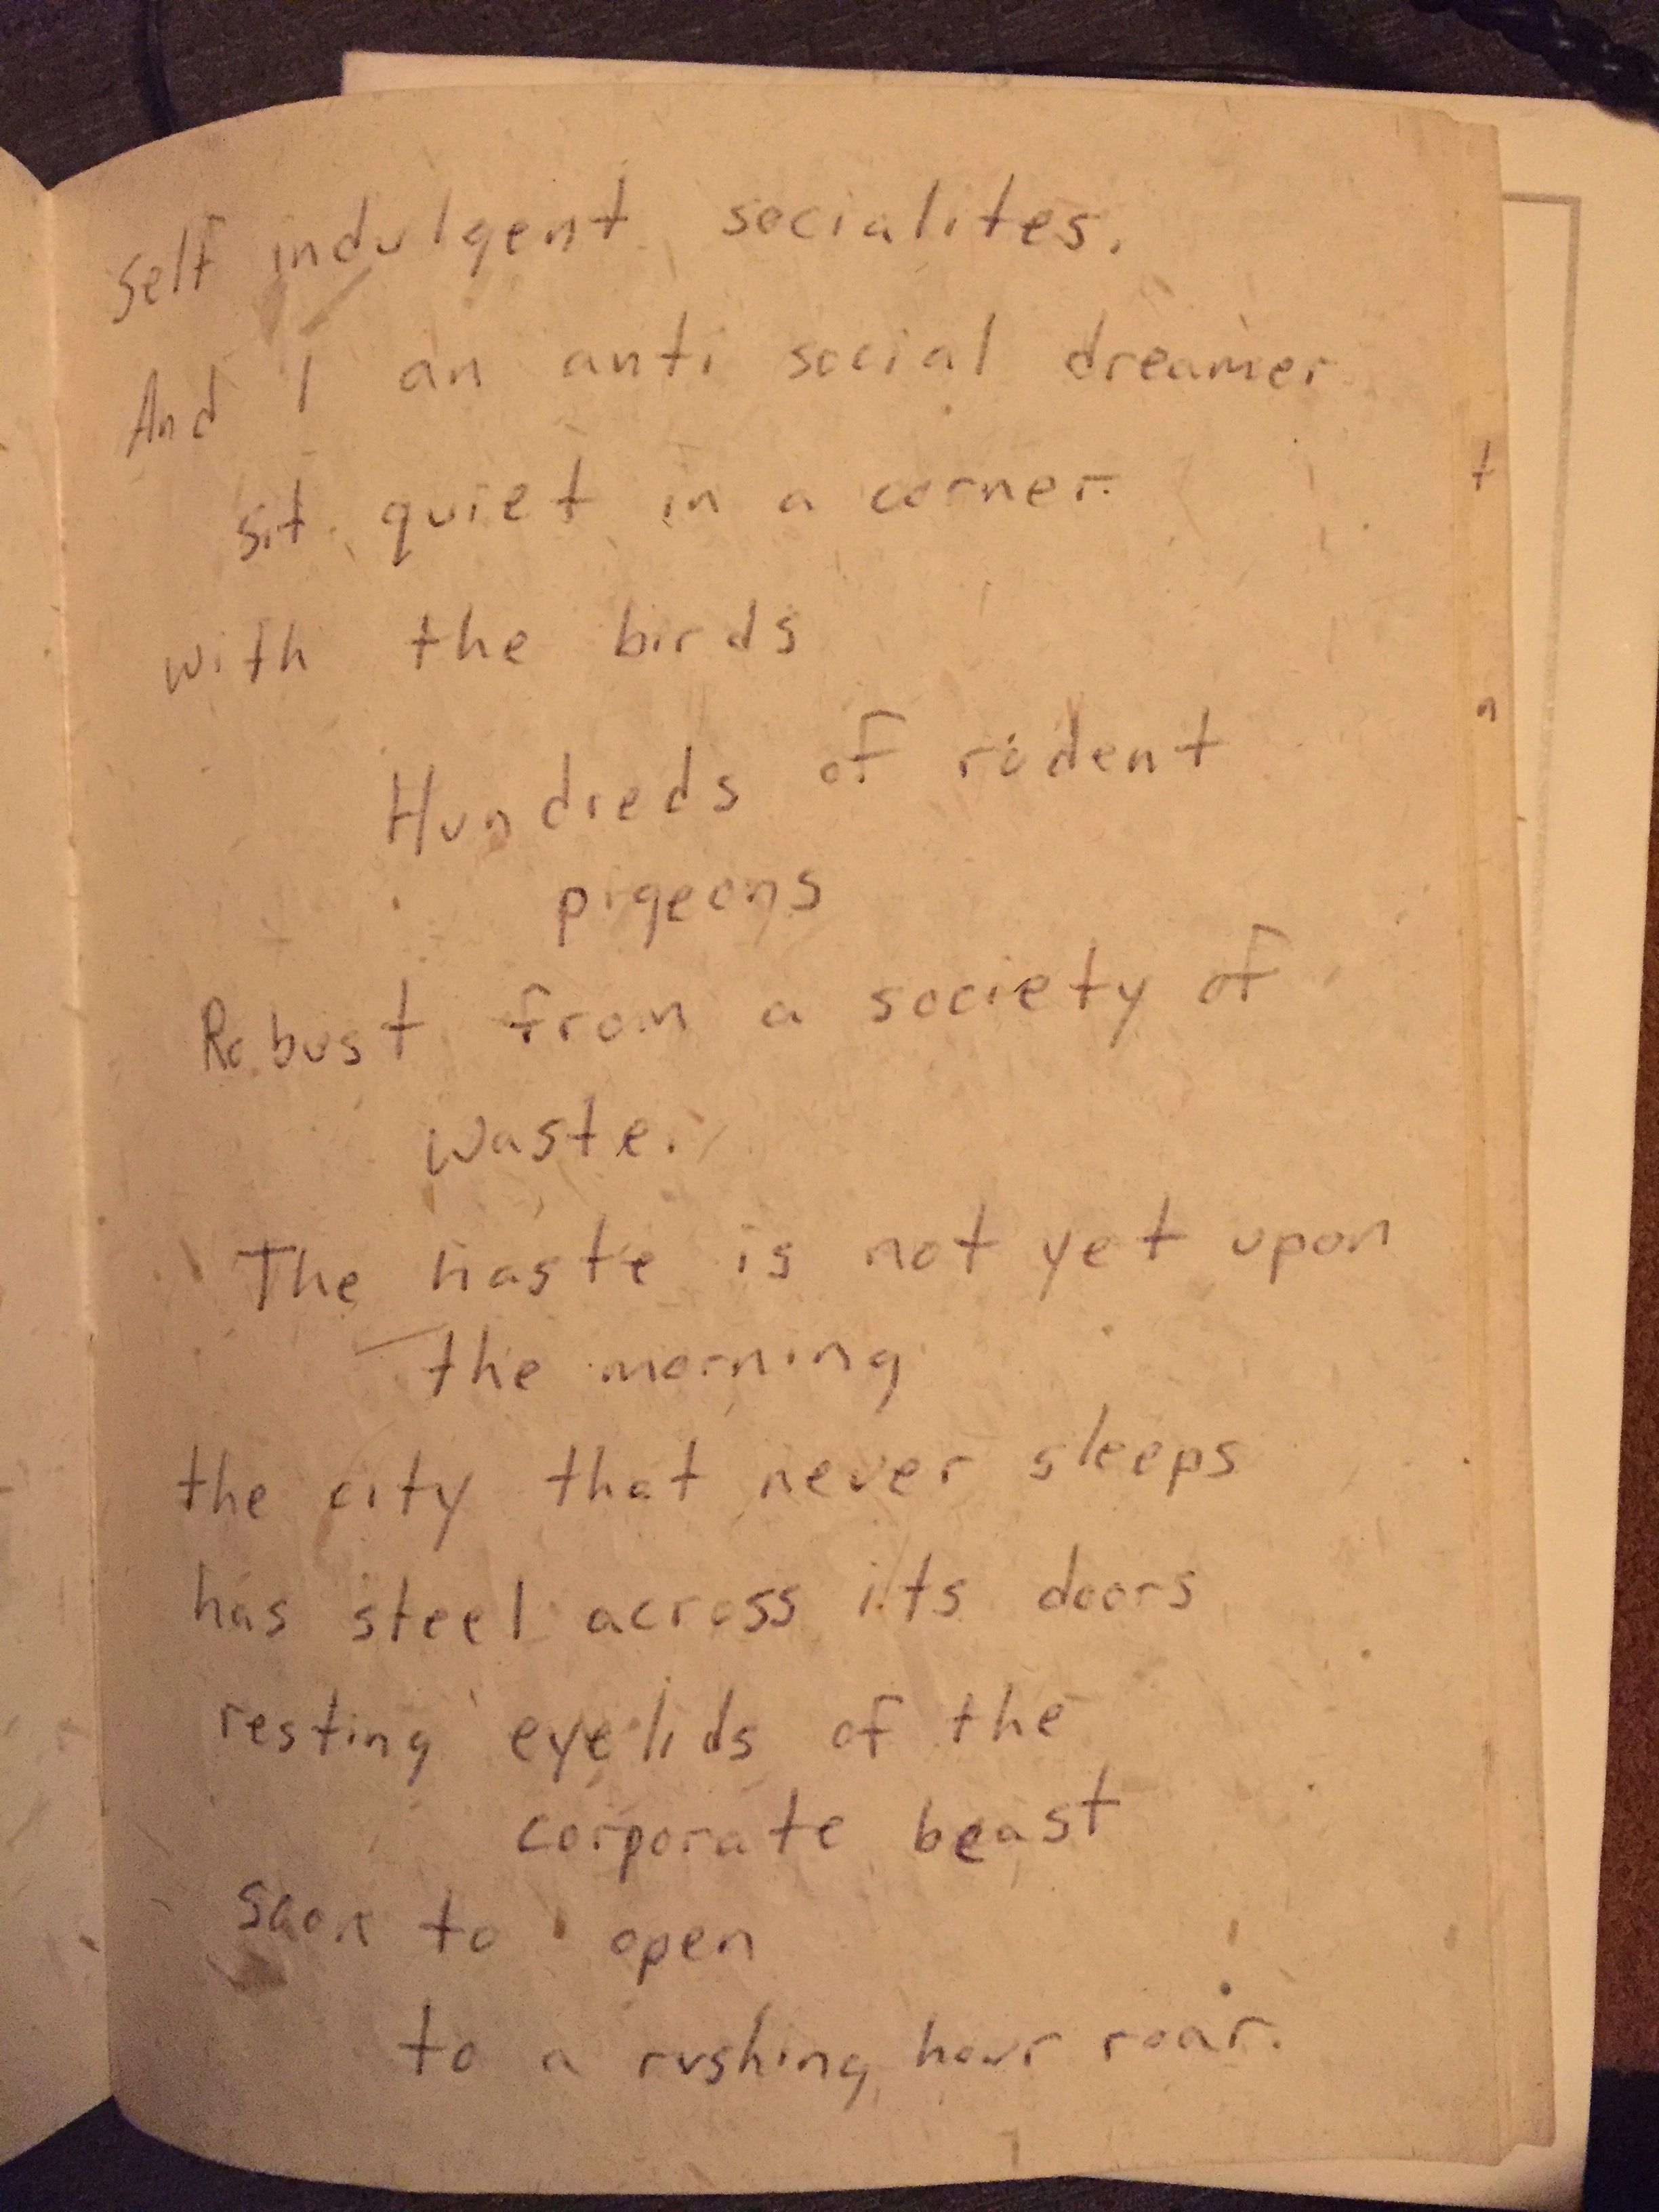 Self indulgent socialites.
And I an anti social dreamer
sit quiet in a corner.
with the birds
Hundreds of rodent
pigeons
Robust from a society of
waste.
The haste is not yet upon
the morning
the city that never sleeps
has steel across its doors
resting eyelids of the
corporate beast
soon to open
to a rushing hour roar.
t
n